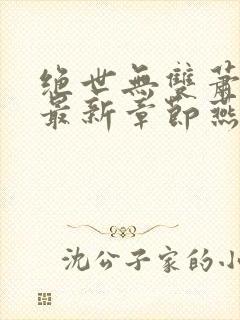 绝世無雙蕭
最新章節燕
沈公子家的小